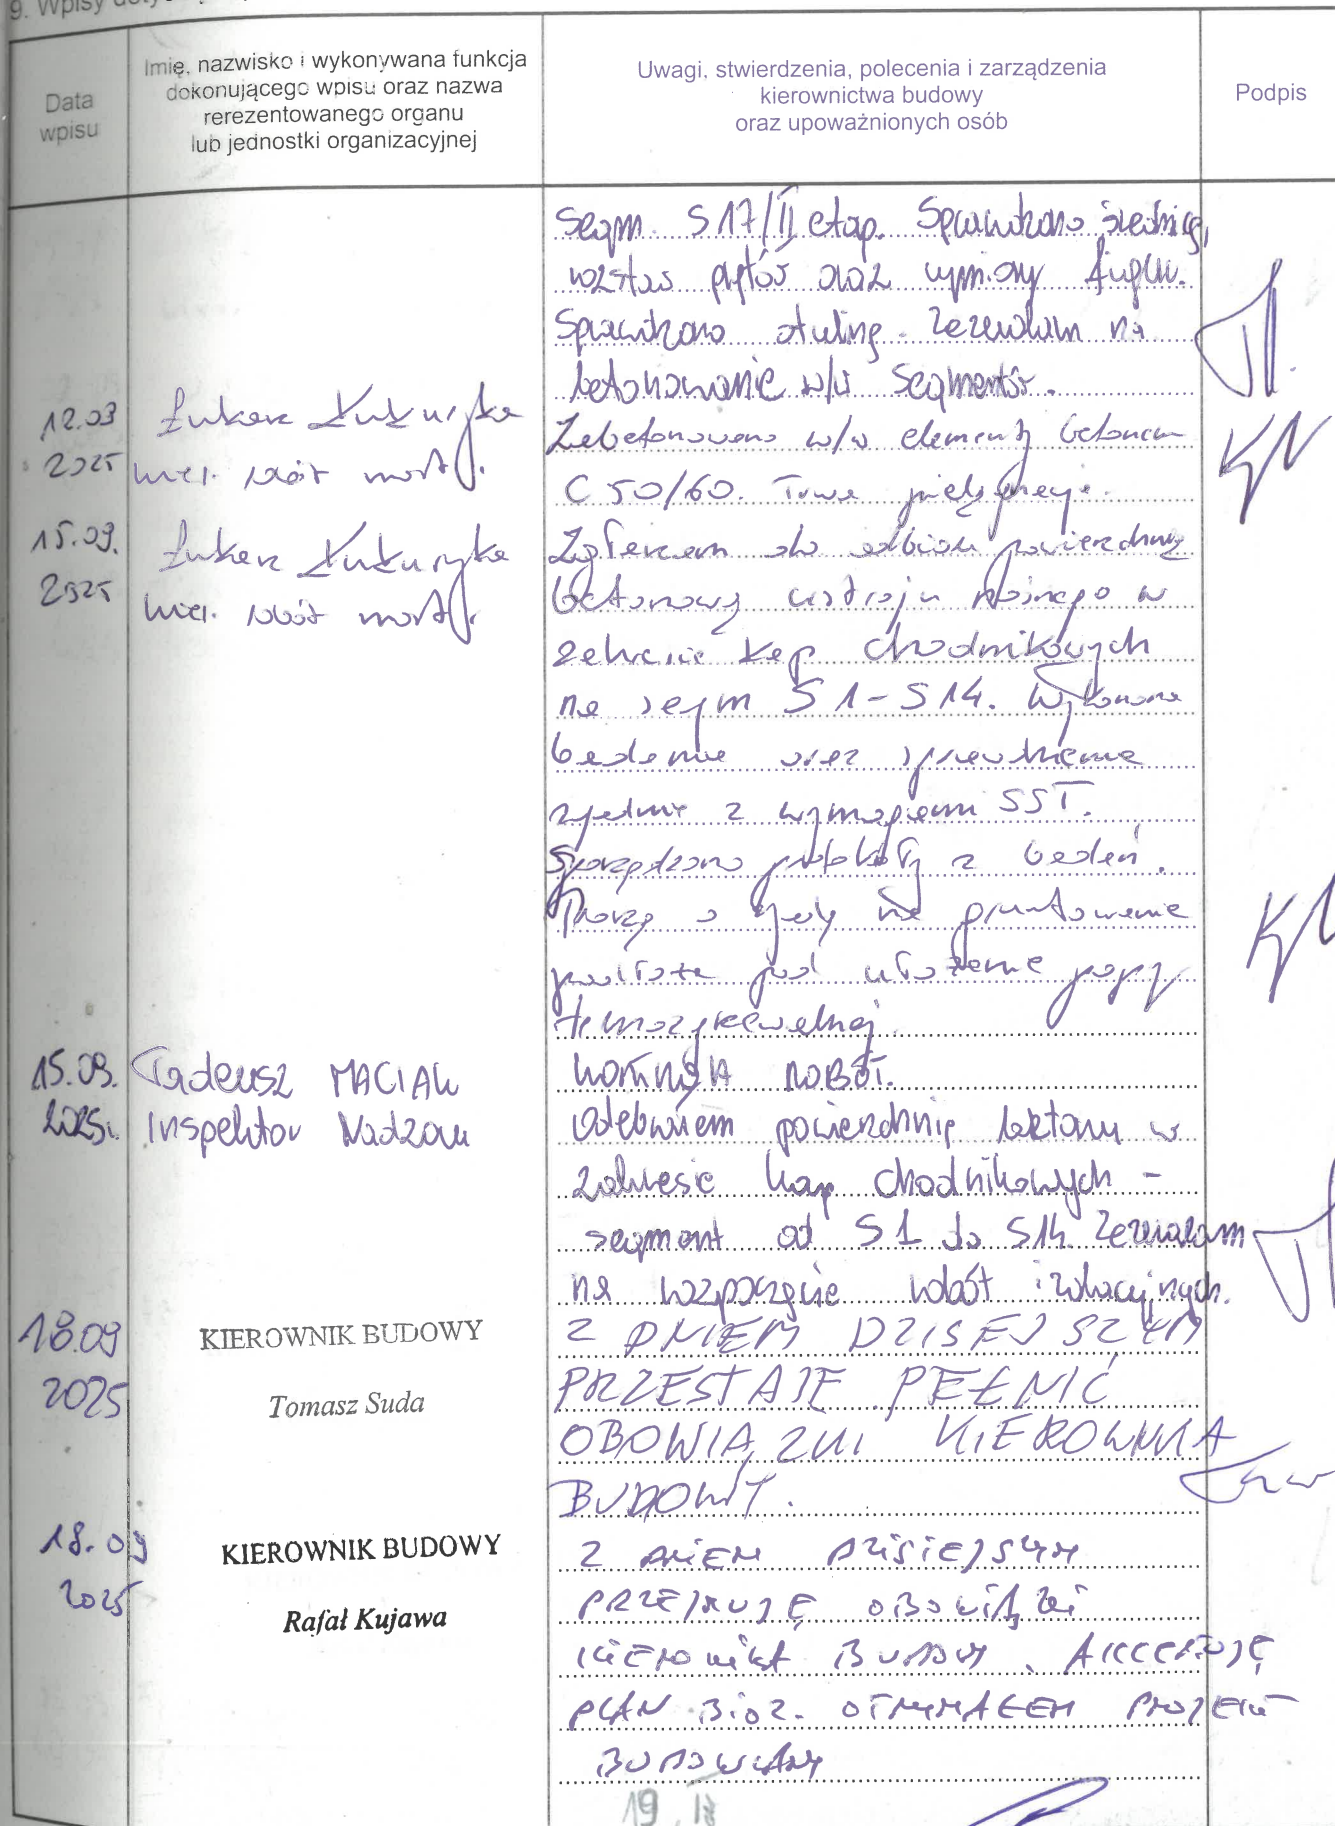 9. Wpisy
Data
wpisu
Imię, nazwisko i wykonywana funkcja
dokonującego wpisu oraz nazwa
rerezentowanego organu
lub jednostki organizacyjnej
Uwagi, stwierdzenia, polecenia i zarządzenia
kierownictwa budowy
oraz upoważnionych osób
Podpis
Segm. S17/II etap. Sprawdzono średnicę,
rozstaw prętów oraz wymiary
Sprawdzono otulinę. Zezwalam na
betonowanie w/w segmentów.
12.09
2025
Łukasz
kier. robót most.
Zabetonowano w/w elementy betonem
C 50/60. Trwa pielęgnacja.
15.09.
2025
Łukasz
kier. robót most.
Zgłaszam do odbioru powierzchnię
betonową ustroju nośnego w
zakresie kap chodnikowych
na segm S1-S14. Wykonano
badania oraz sprawdzenia
zgodnie z wymaganiami SST.
Sporządzono protokoły z badań.
Proszę o zgodę na gruntowanie
podłoża pod ułożenie papy
termozgrzewalnej
15.09.
2025r.
Tadeusz MACIAK
Inspektor Nadzoru
KONTROLA ROBÓT.
Odebrałem powierzchnię betonu w
zakresie kap chodnikowych -
segment od S1 do S14. Zezwalam
na rozpoczęcie robót izolacyjnych.
18.09
2025
KIEROWNIK BUDOWY
Tomasz Suda
Z DNIEM DZISIEJSZYM
PRZESTAJE PEŁNIĆ
OBOWIĄZKI KIEROWNIKA
BUDOWY.
18.09
2025
KIEROWNIK BUDOWY
Rafał Kujawa
Z DNIEM DZISIEJSZYM
PRZEJMUJĘ OBOWIĄZKI
KIEROWNIKA BUDOWY. AKCEPTUJĘ
PLAN BIOZ. OTRZYMAŁEM PROJEKT
BUDOWLANY
19